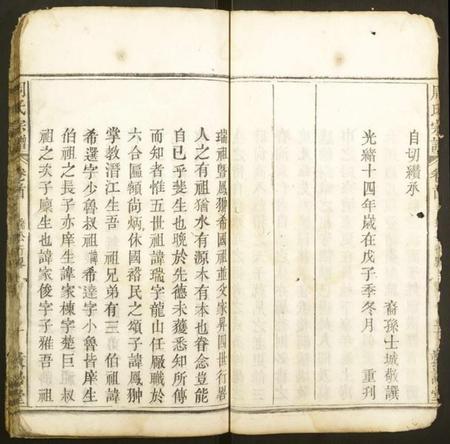 自切纘承
光緒十四年歲在戊子季冬月
裔孫士城敬譔 重刋
周氏宗譜
卷首
瑞祖暨鳳翀希國祖並文家昇四世行畧
人之有祖猶水有源木有本也眷念豈能
自已乎斐生也晚於先德未獲悉知所傳
而知者惟五世祖諱瑞字龍山任厰職於
六合區頓尙炳休國裕民之頌子諱鳳翀
掌教潛江生吾 祖兄弟有三 伯祖諱
希選字少魯叔祖諱希達字小魯皆庠生
伯祖之長子亦庠生諱家棟字楚巨 叔
祖之次子廪生也諱家俊字子雅吾 祖
周氏宗譜
卷首